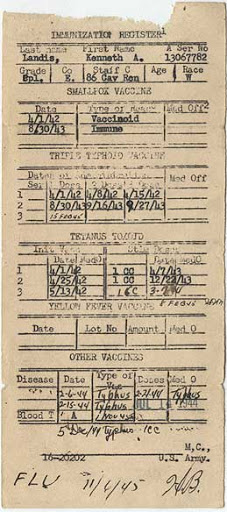 IMMUNIZATION REGISTER1
Last name First Name A Ser No
Landis, Kenneth A. 13067782
Grade Co Staff C Age Race
Bpl. E. 86 Gav Ron W
SMALLPOX VACCINE
Date Type of Reac Med Off2
4/1/42 Vaccinoid
8/30/43 Immune
TRIPLE TYPHOID VACCINE
Dates of Administration Med Off
Ser 1 Dose 2 Dose 3 Dose
1 4/1/42 4/8/42 4/15/42
2 8/30/43 9/16/43 9/27/43
3 15 FEB 45
TETANUS TOXOID
Init Vacc Stim Doses
Date Med O Date Med O
1 4/1/42 1 CC 4/7/43
2 4/25/42 1 CC 12/22/43
3 5/13/42 1 CC
YELLOW FEVER VACCINE
Date Lot No Amount Med O
OTHER VACCINES
Disease Date Type of Vac Doses Med O
2-6-44 Typhus Typhus
2-15-44 Typhus JUL 1944
Blood T A
5 Dec/44 Typhus 1CC
M,C.,
16-20202 U.S. Army.
FLU 11/6/45 HB.